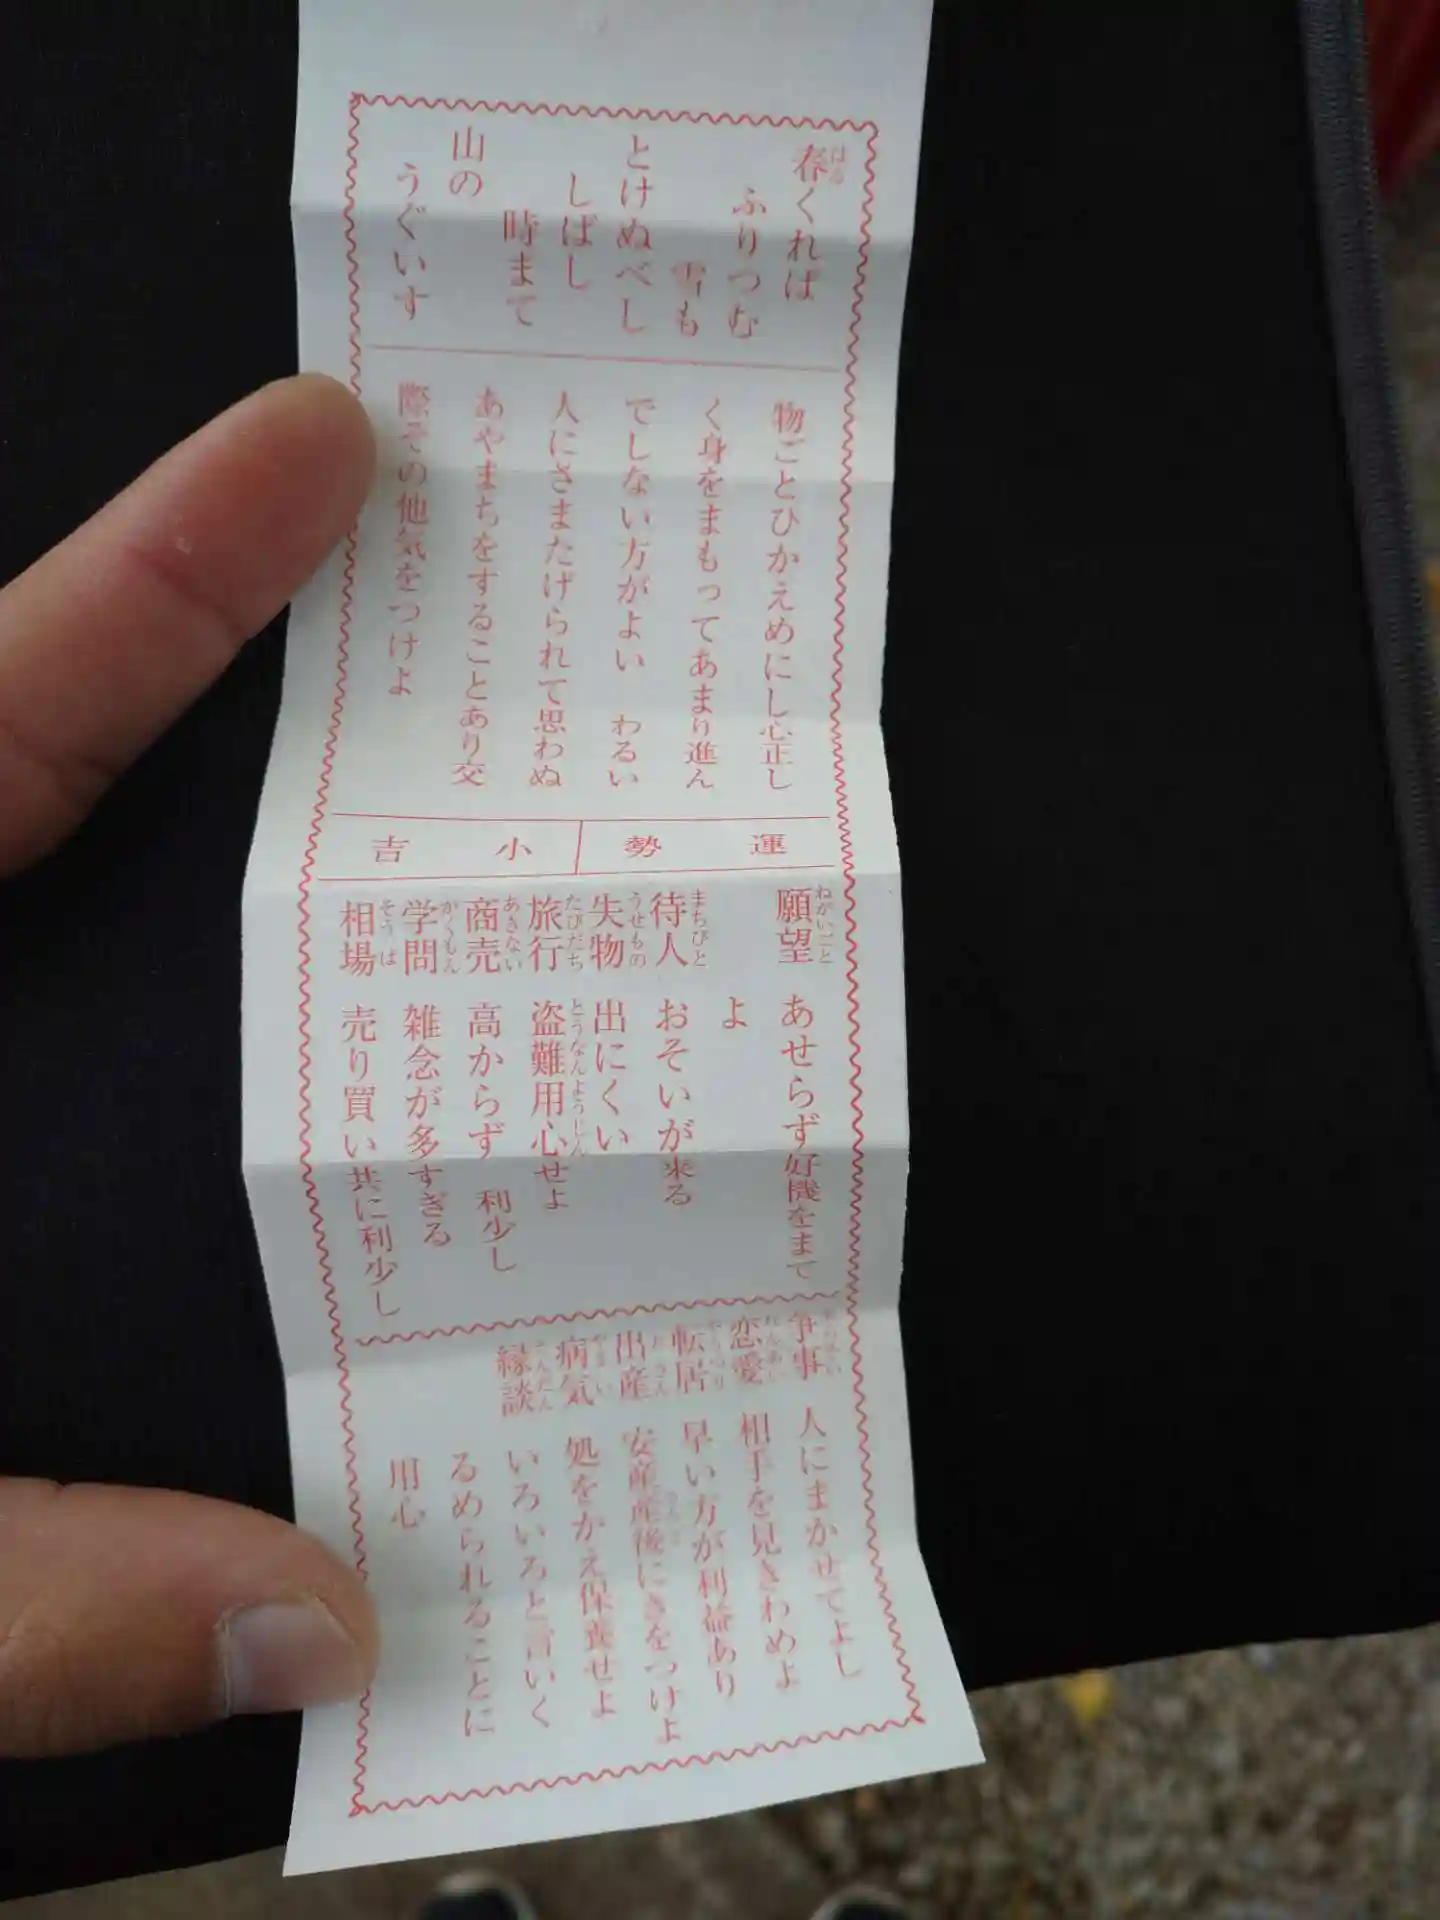 春くれば
ふりつむ
雪も
とけぬべし
しばし
時まて
山の
うぐいす
物ごとひかえめにし心正し
く身をまもってあまり進ん
でしない方がよい　わるい
人にさまたげられて思わぬ
あやまちをすることあり交
際その他気をつけよ
運勢　小吉
願望　あせらず好機をまて
よ
待人　おそいが来る
失物　出にくい
旅行　盗難用心せよ
商売　高からず　利少し
学問　雑念が多すぎる
相場　売り買い共に利少し
争事　人にまかせてよし
恋愛　相手を見きわめよ
転居　早い方が利益あり
出産　安産産後にきをつけよ
病気　処をかえ保養せよ
縁談　いろいろと言いく
るめられることに
用心